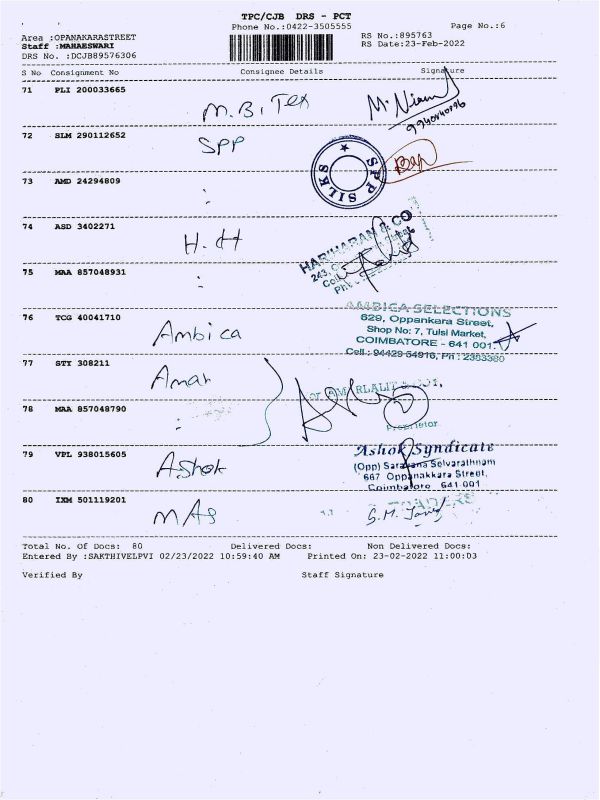 TPC/CJB DRS - PCT
Phone No.:0422-3505555
Page No.:6
Area :OPANAKARASTREET
RS No.:895763
Staff :MAHAESWARI
RS Date:23-Feb-2022
DRS No. :DCJB89576306
S No Consignment No Consignee Details Signature
71 PLI 200033665
M.B. Tex
72 SLM 290112652
SPP
SPP SILKS
73 AMD 24294809
:
74 ASD 3402271
H.H
HARIHARAN & CO
75 MAA 857048931
:
76 TCG 40041710
Ambica
AMBICA SELECTIONS
629, Oppankara Street,
Shop No: 7, Tulsi Market,
COIMBATORE - 641 001.
Cell : 94429 54916, Ph : 2383380
77 STT 308211
Amar
78 MAA 857048790
:
Proprietor
79 VPL 938015605
Ashok
Ashok Syndicate
(Opp) Saravana Selvarathnam
667 Oppanakkara Street,
Coimbatore 641 001
80 IXM 501119201
MAS
TRADERS
Total No. Of Docs: 80 Delivered Docs: Non Delivered Docs:
Entered By :SAKTHIVELPVI 02/23/2022 10:59:40 AM Printed On: 23-02-2022 11:00:03
Verified By Staff Signature